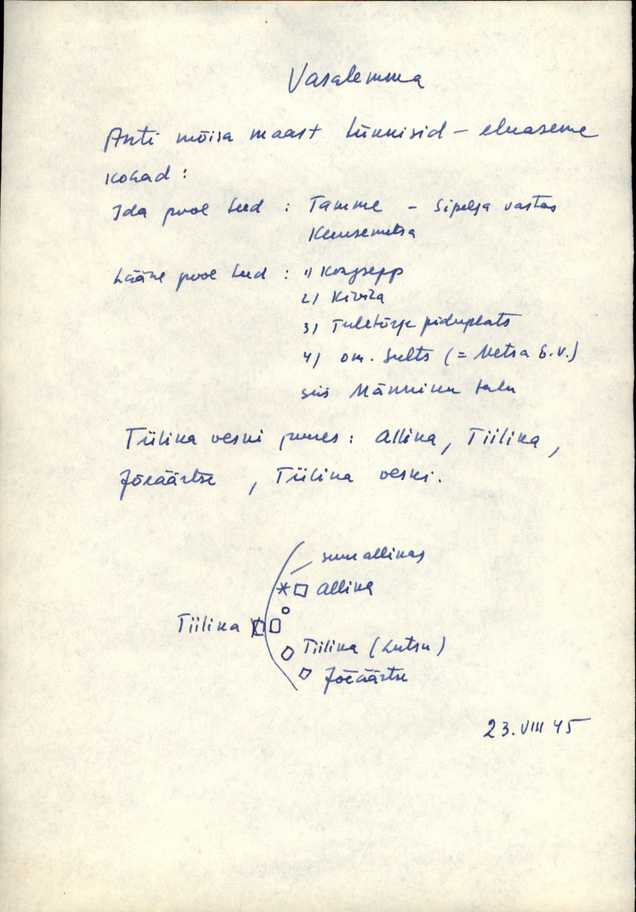 Vasalemma
Anti mõisa maast tükkisid – eluaseme
kohad:
Ida pool teed : Tamme – Sipelga vastas
Kuusemetsa
Lääne pool teed : 1) Kingsepp
2) Kivira
3) Tuletõrje piduplats
4) om. Sults (= Metsa 6.v.)
siis Männiku talu
Tiilika veski juures: Allika, Tiilika,
Jõeäärtse, Tiilika veski.
suur allikas
Allika
Tiilika
Tiilika (Lutsu)
Jõeäärtse
23.VIII 45